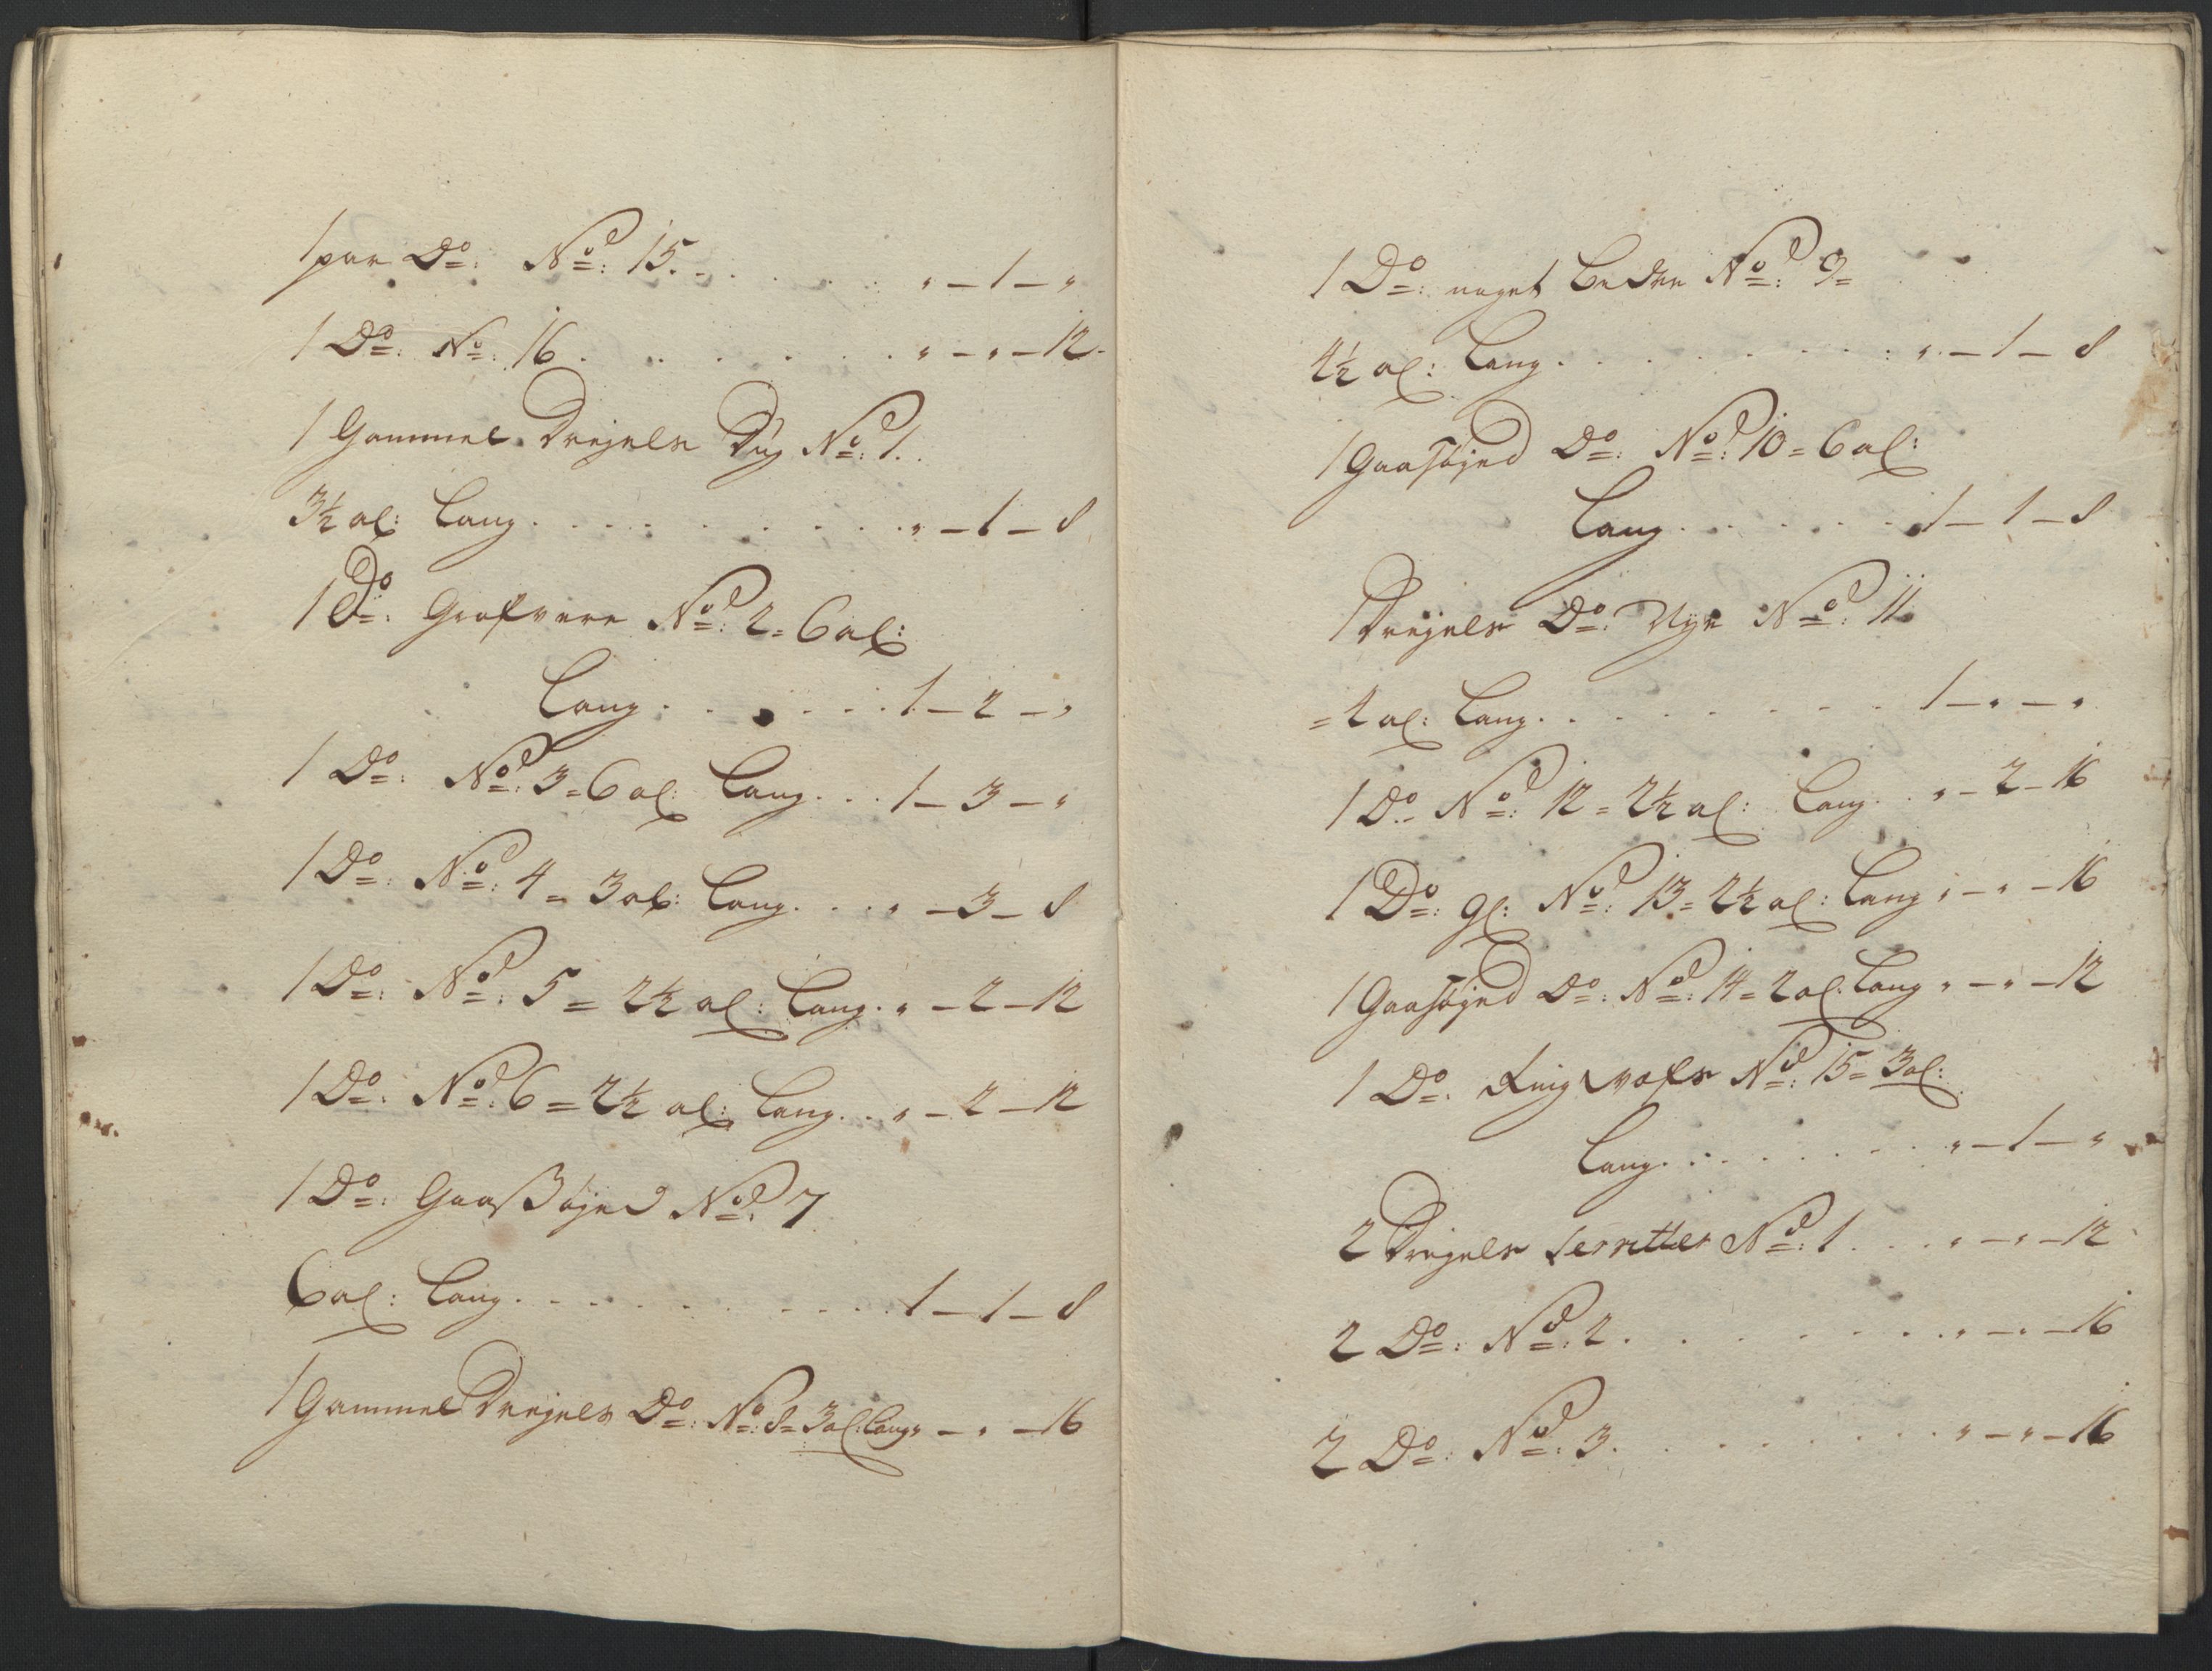 1 par Do: No: 15. . . . . . . . „ – 1 – „
1 Do: No: 16 . . . . . . . . „ – „ – 12.
1 Gammel Drejels Dug No: 1.
3½ al: Lang . . . . . . . . . „ – 1 – 8
1 Do: Grofvere No: 2 = 6 al:
Lang . . . . . . . 1 – 2 – „
1 Do: No: 3 = 6 al: Lang . . . 1 – 3 – „
1 Do: No: 4 = 3 al: Lang . . . „ – 3 – 8
1 Do: No: 5 = 2½ al: Lang . „ – 2 – 12
1 Do: No: 6 = 2½ al: Lang . . „ – 2 – 12
1 Do: Gaasßøjed No: 7
6 al: Lang . . . . . . . . . . 1 – 1 – 8
1 Gammel Drejels Do: No: 8 = 3 al: Lang „ – „ – 16
1 Do: noget bedre No: 9 =
4½ al: Lang . . . . . . . . . „ – 1 – 8
1 Gaasøjed Do: No: 10 = 6 al:
Lang . . . . . . 1 – 1 – 8
1 Drejels Do: Nye No: 11
= 4 al: Lang . . . . . . . . . 1 – „ – „
1 Do: No: 12 = 2½ al: Lang . . „ – 2 – 16
1 Do: gl: No: 13 = 2½ al: Lang „ – „ – 16
1 Gaasøjed Do: No: 14 = 2 al: Lang „ – „ – 12
1 Do: No: 15 = 3 al:
Lang . . . . . . . . „ – 1 – „
2 Drejels Servitter No: 1 . . . „ – „ – 12
2 Do: No: 2 . . . . . . . . „ – „ – 16
2 Do: No: 3 . . . . . . . . „ – „ – 16